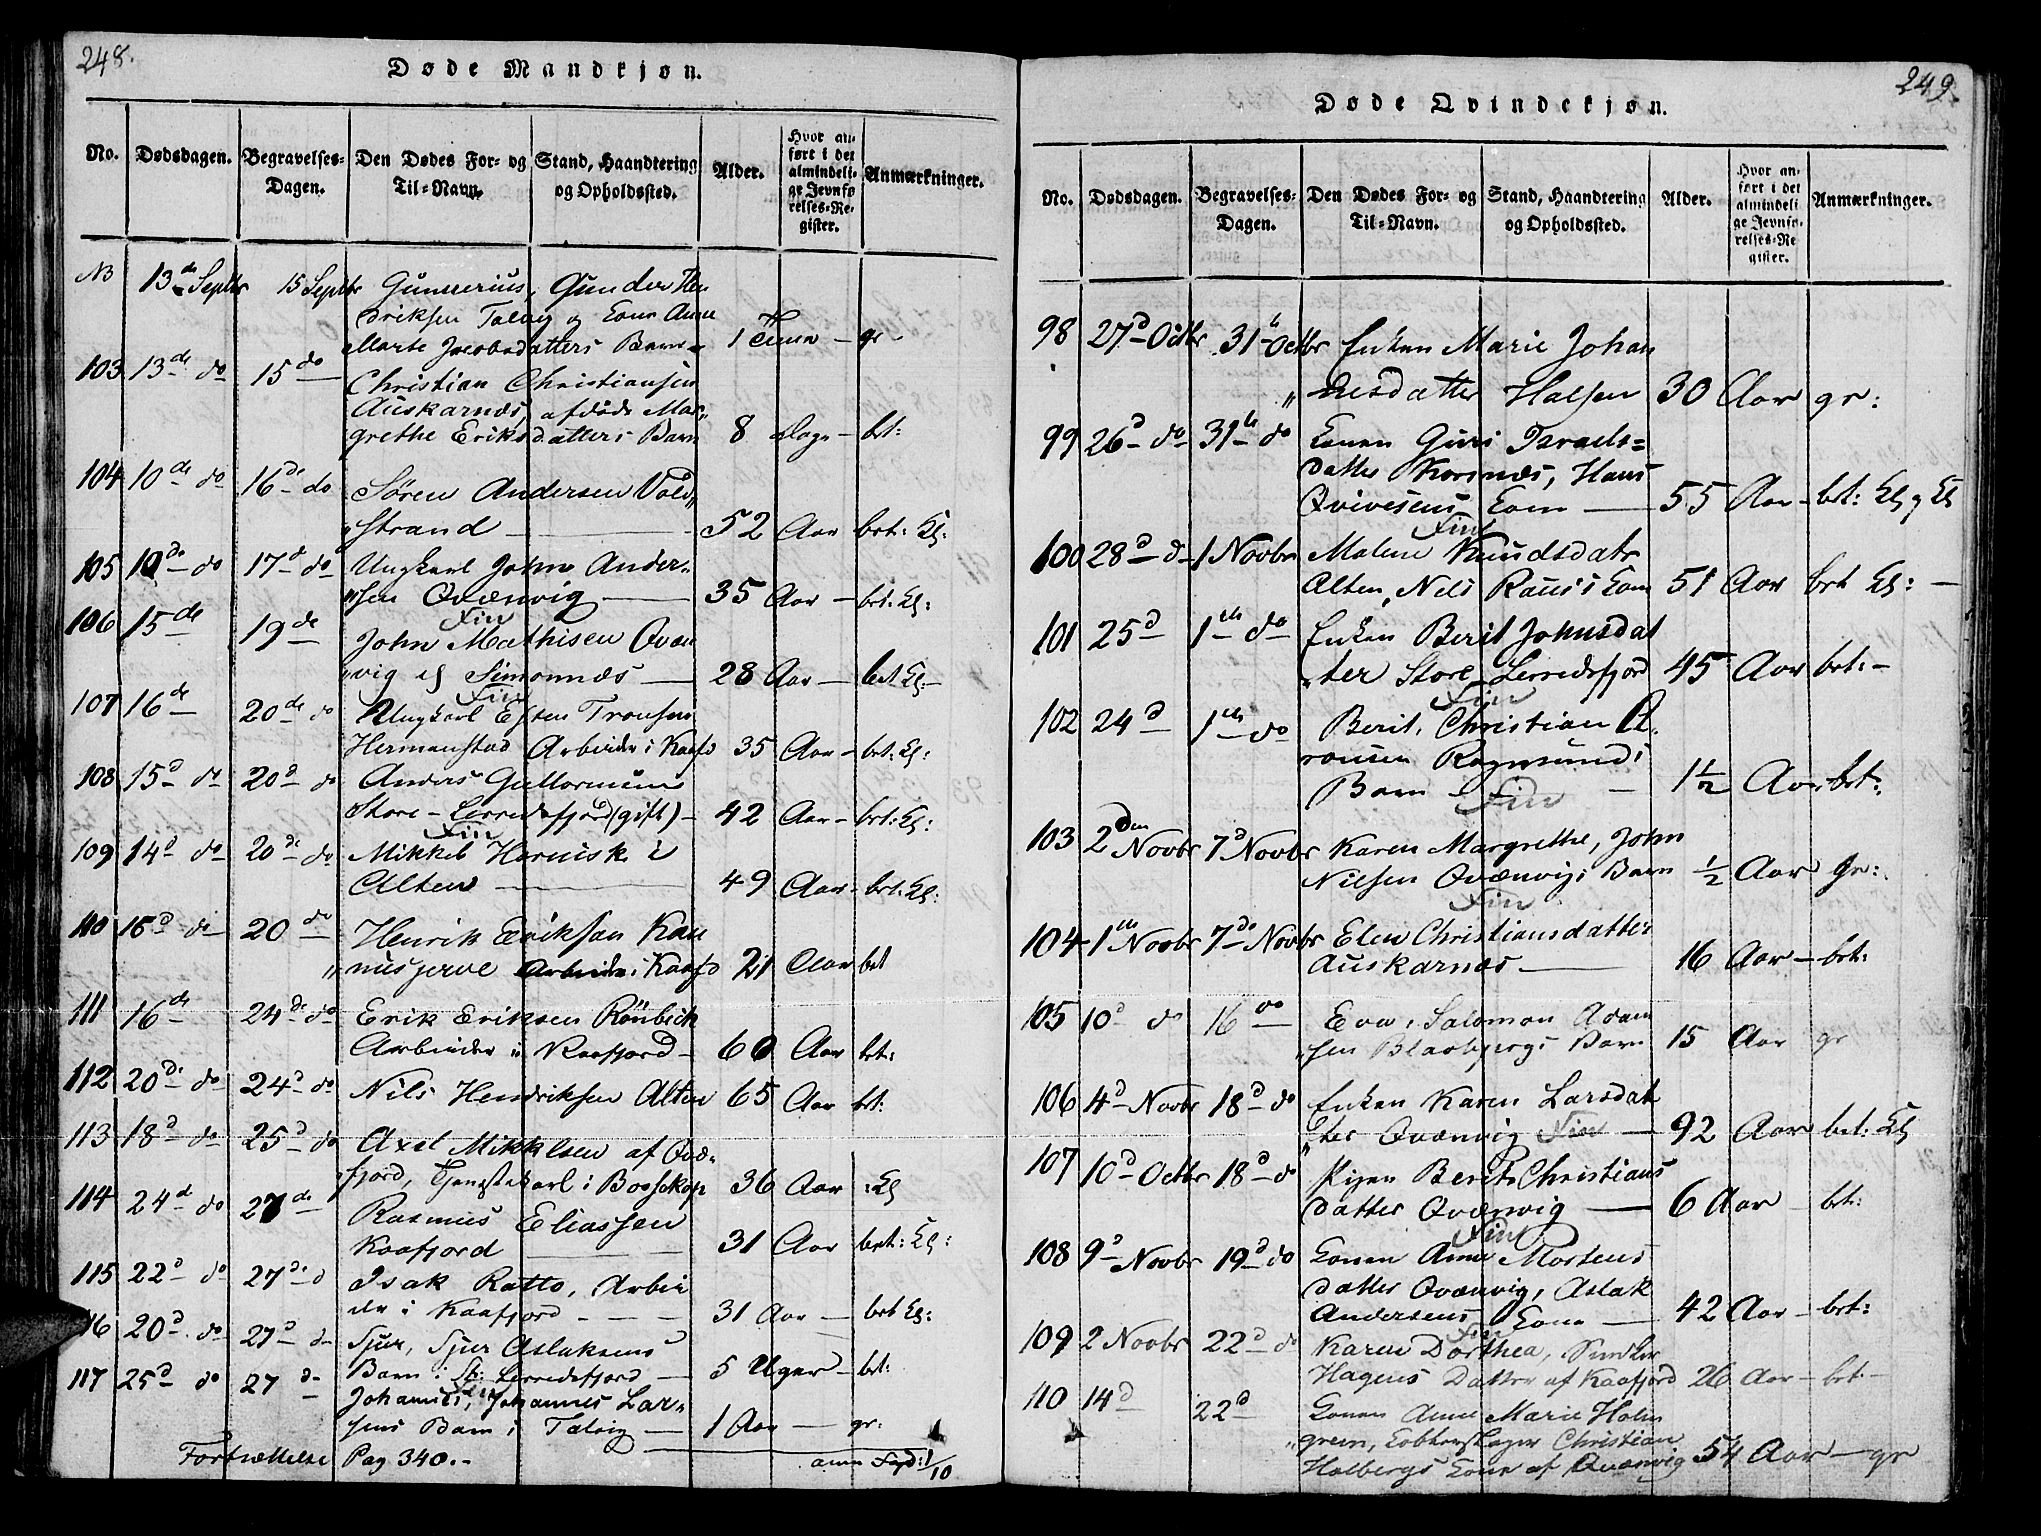 248.
Døde Mandkjøn.
No. Dødsdagen. Begravelses-Dagen. Den Dødes For- og Til-Navn. Stand, Haandtering og Opholdssted. Alder. Hvor anført i det almindelige Jevnførelses-Register. Anmærkninger.
NB 13de Septbr 15 Septbr Gunnerius, Gunder Hen
driksen Talvig og Kone Anne
Marte Jacobsdatters Barn 1 Time - gr -
103 13de do 15 do Christian Christiansen
Auskarnæs, afdøde Mar„
grethe Eriksdatters Barn 8 Dage - bet:
104 10de do 16de do Søren Andersen Vold„
„strand 52 Aar bet: Kl:
105 10de do 17de do Ungkarl John Ander„
„sen Qvænvig 35 Aar - bet: Kl:
Fin
106 15de 19de John Mathisen Qvæn
„vig af Simonnæs 28 Aar - bet Kl -
Fin
107 16de 20de do Ungkarl Esten Tronsen
Hermanstad Arbeider i Kaafd 35 Aar - bet: Kl:
108 15d do 20d do Anders Guttormsen
Store-Lerredsfjord (gift) - 42 Aar - bet: Kl:
Fin
109 14d do 20de do Mikkel Hornisk i
Alten 49 Aar - bet: Kl:
110 15d do 20 do Henrik Eriksen Kan
„nusjerve Arbeider i Kaafd 21 Aar bet
111 16de 24de do Erik Eriksen Rönbeck
Arbeider i Kaafjord - 60 Aar bet:
112 20de do 24d do Nils Hendriksen Alten 65 Aar bet:
113 18d do 25d do Axel Mikkelsen af Qvæ„
fjord, Tjenestekarl i Bossekop 36 Aar :Kl
114 24d do 27de Rasmus Eliassen
Kaafjord 31 Aar bet: Kl:
115 22d do 27de d Isak Ratto, Arbei
der i Kaafjord 31 Aar - bet Kl:
116 20d do 27d d Sjur, Sjur Aslaksens
Barn i St: Lerredsfjord 5 Uger - bet:
Fin
117 25d do 27 d Johannes, Johannes Lar„
sens Barn i Talvig 1 Aar - gr:
Fortsættelse Pag 340.-
249.
Døde Qvindekjøn.
No. Dødsdagen. Begravelses-Dagen. Den Dødes For- og Til-Navn. Stand, Haandtering og Opholdssted. Alder. Hvor anført i det almindelige Jevnførelses-Register. Anmærkninger.
98 27d Octbr 31te Octbr Enken Marie Johan
„nesdatter Halsen 30 Aar gr:
99 26d do 31te do Konen Guri Israels-
datter Korsnæs, Hans
Qvivesens Kone 55 Aar - bet: Kl og Kl
Fin
100 28d d 1 Novbr Malene Knudsdatr
Alten, Nils Rausis Kone 51 Aar bet Kl: -
101 25d 1te do Enken Berit Johnsdat
„ter Store-Lerredsfjord 45 Aar bet: -
Fin
102 24d 1te do Berit, Christian A„
ronsen Ragnsunds
Barn 1½ Aar bet:
Fin
103 2den Novbr 7d Novbr Karen Margrethe, John
Nilsen Qvænvigs Barn ½ Aar gr:
Fin
104 1te Novbr 7de Novbr Elen Christiansdatter
Auskarnæs 16 Aar - bet:
105 10d do 16 do Eva, Salomon Adam
„sen Blaabjergs Barn 15 Aar gr
106 4d Novbr 18d do Enken Karen Larsdat
„ter Qvænvig Fin 92 Aar bet: Kl
107 10d Octbr 18d do Pigen Berit Christians
datter Qvænvig 6 Aar - bet:
Fin
108 9d Novbr 19d do Konen Anne Mortens
datter Qvænvig, Aslak
Andersens Kone 42 Aar - bet:
Fin
109 2 Novbr 22d do Karen Dorthea, Smeker
Hagens Datter af Kaafjord 26 Aar - bet: -
110 14d 22d Konen Anne Marie Holm
„green, Kobberslager Christian
Holbergs Kone af Qvænvig 54 Aar - gr